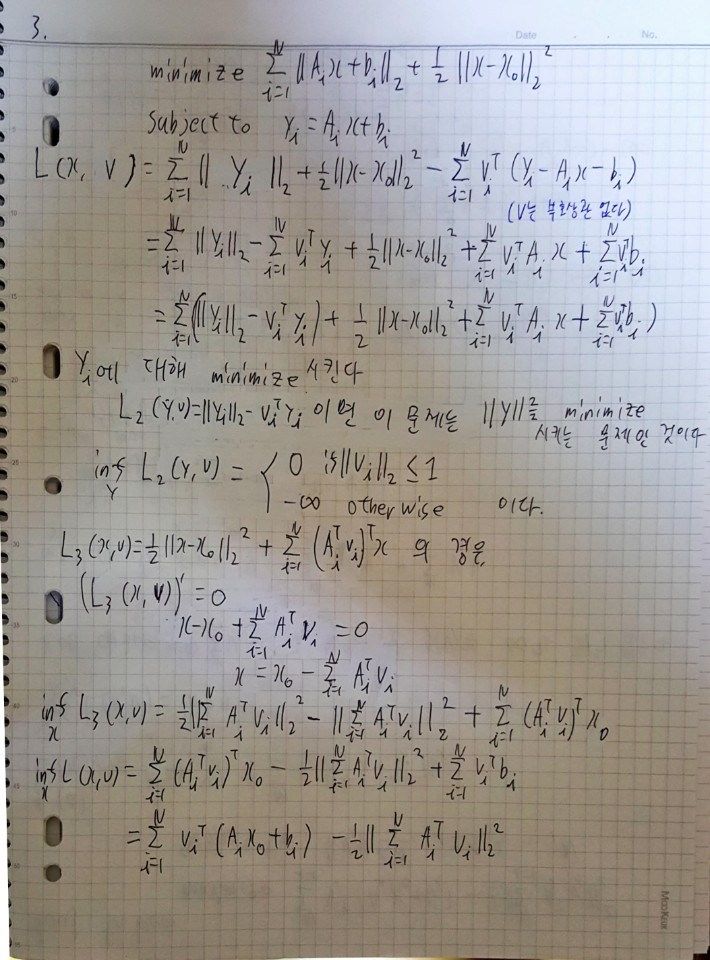 3.
Date . . No.
minimize \sum_{i=1}^{N} ||A_i x + b_i||_2 + \frac{1}{2} ||x - x_0||_2^2
subject to y_i = A_i x + b_i
L(x, v) = \sum_{i=1}^{N} || y_i ||_2 + \frac{1}{2} ||x - x_0||_2^2 - \sum_{i=1}^{N} v_i^T (y_i - A_i x - b_i)
(v는 부호상관 없다)
= \sum_{i=1}^{N} ||y_i||_2 - \sum_{i=1}^{N} v_i^T y_i + \frac{1}{2} ||x - x_0||_2^2 + \sum_{i=1}^{N} v_i^T A_i x + \sum_{i=1}^{N} v_i^T b_i
= \sum_{i=1}^{N} (||y_i||_2 - v_i^T y_i) + \frac{1}{2} ||x - x_0||_2^2 + \sum_{i=1}^{N} v_i^T A_i x + \sum_{i=1}^{N} v_i^T b_i )
y_i에 대해 minimize 시킨다
L_2(y, v) = ||y_i||_2 - v_i^T y_i 이면 이 문제는 ||y||_2를 minimize
시키는 문제인 것이다
inf_y L_2(y, v) = { 0 if ||v_i||_2 ≤ 1
-∞ otherwise 이다.
L_3(x, v) = \frac{1}{2} ||x - x_0||_2^2 + \sum_{i=1}^{N} (A_i^T v_i)^T x 의 경우,
(L_3(x, v))' = 0
x - x_0 + \sum_{i=1}^{N} A_i^T v_i = 0
x = x_0 - \sum_{i=1}^{N} A_i^T v_i
inf_x L_3(x, v) = \frac{1}{2} ||\sum_{i=1}^{N} A_i^T v_i||_2^2 - ||\sum_{i=1}^{N} A_i^T v_i||_2^2 + \sum_{i=1}^{N} (A_i^T v_i)^T x_0
inf_x L(x, v) = \sum_{i=1}^{N} (A_i^T v_i)^T x_0 - \frac{1}{2} ||\sum_{i=1}^{N} A_i^T v_i||_2^2 + \sum_{i=1}^{N} v_i^T b_i
= \sum_{i=1}^{N} v_i^T (A_i x_0 + b_i) - \frac{1}{2} || \sum_{i=1}^{N} A_i^T v_i ||_2^2